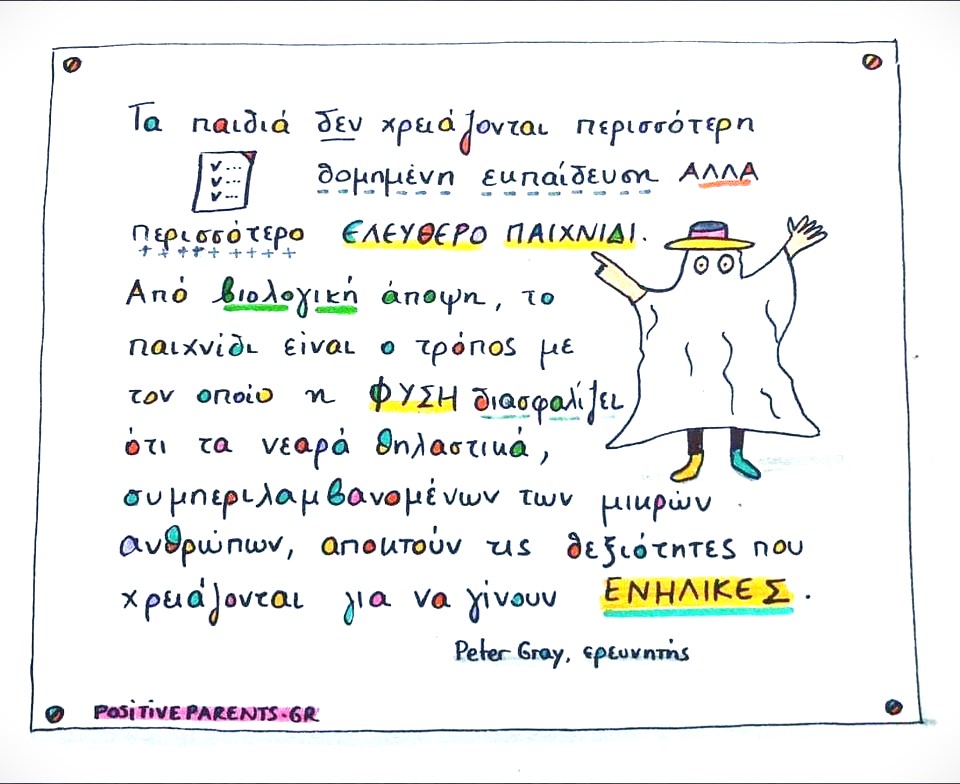 Τα παιδιά δεν χρειάζονται περισσότερη
δομημένη εκπαίδευση ΑΛΛΑ
περισσότερο ΕΛΕΥΘΕΡΟ ΠΑΙΧΝΙΔΙ.
Από βιολογική άποψη, το
παιχνίδι είναι ο τρόπος με
τον οποίο η ΦΥΣΗ διασφαλίζει
ότι τα νεαρά θηλαστικά,
συμπεριλαμβανομένων των μικρών
ανθρώπων, αποκτούν τις δεξιότητες που
χρειάζονται για να γίνουν ΕΝΗΛΙΚΕΣ.
Peter Gray, ερευνητής
POSITIVEPARENTS.GR